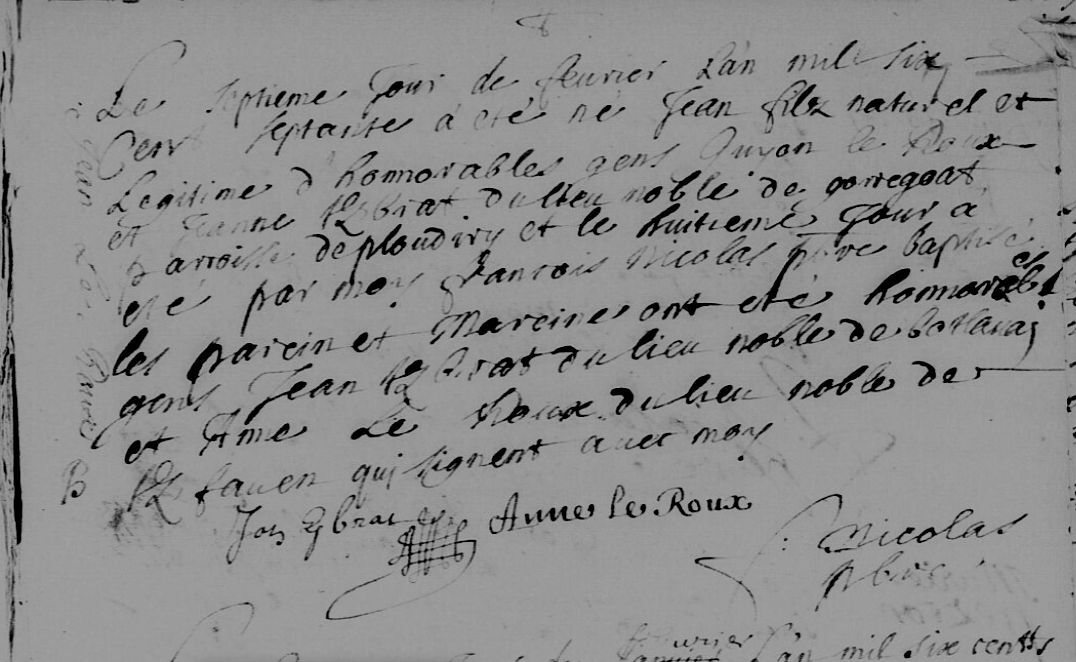 Le septieme Jour de fevrier L'an mil six
Cent septante a été né Jean filz naturel et
Legitime d'honnorables gens Guyon le Roux
et Jeanne Kbrat du lieu noble de gorregoat
parroisse de ploudiry et le huitieme Jour a
eté par moy francois Nicolas pbre baptisé
les parein et Mareine ont eté honnorables
gens Jean Kbrat du lieu noble de
et Anne Le Roux du lieu noble de
Kfaven qui signent avec moy
Jan Kbrat Anne le Roux
Nicolas
pbre
Jean Le Roux
B
fevrier
L'an mil six centts